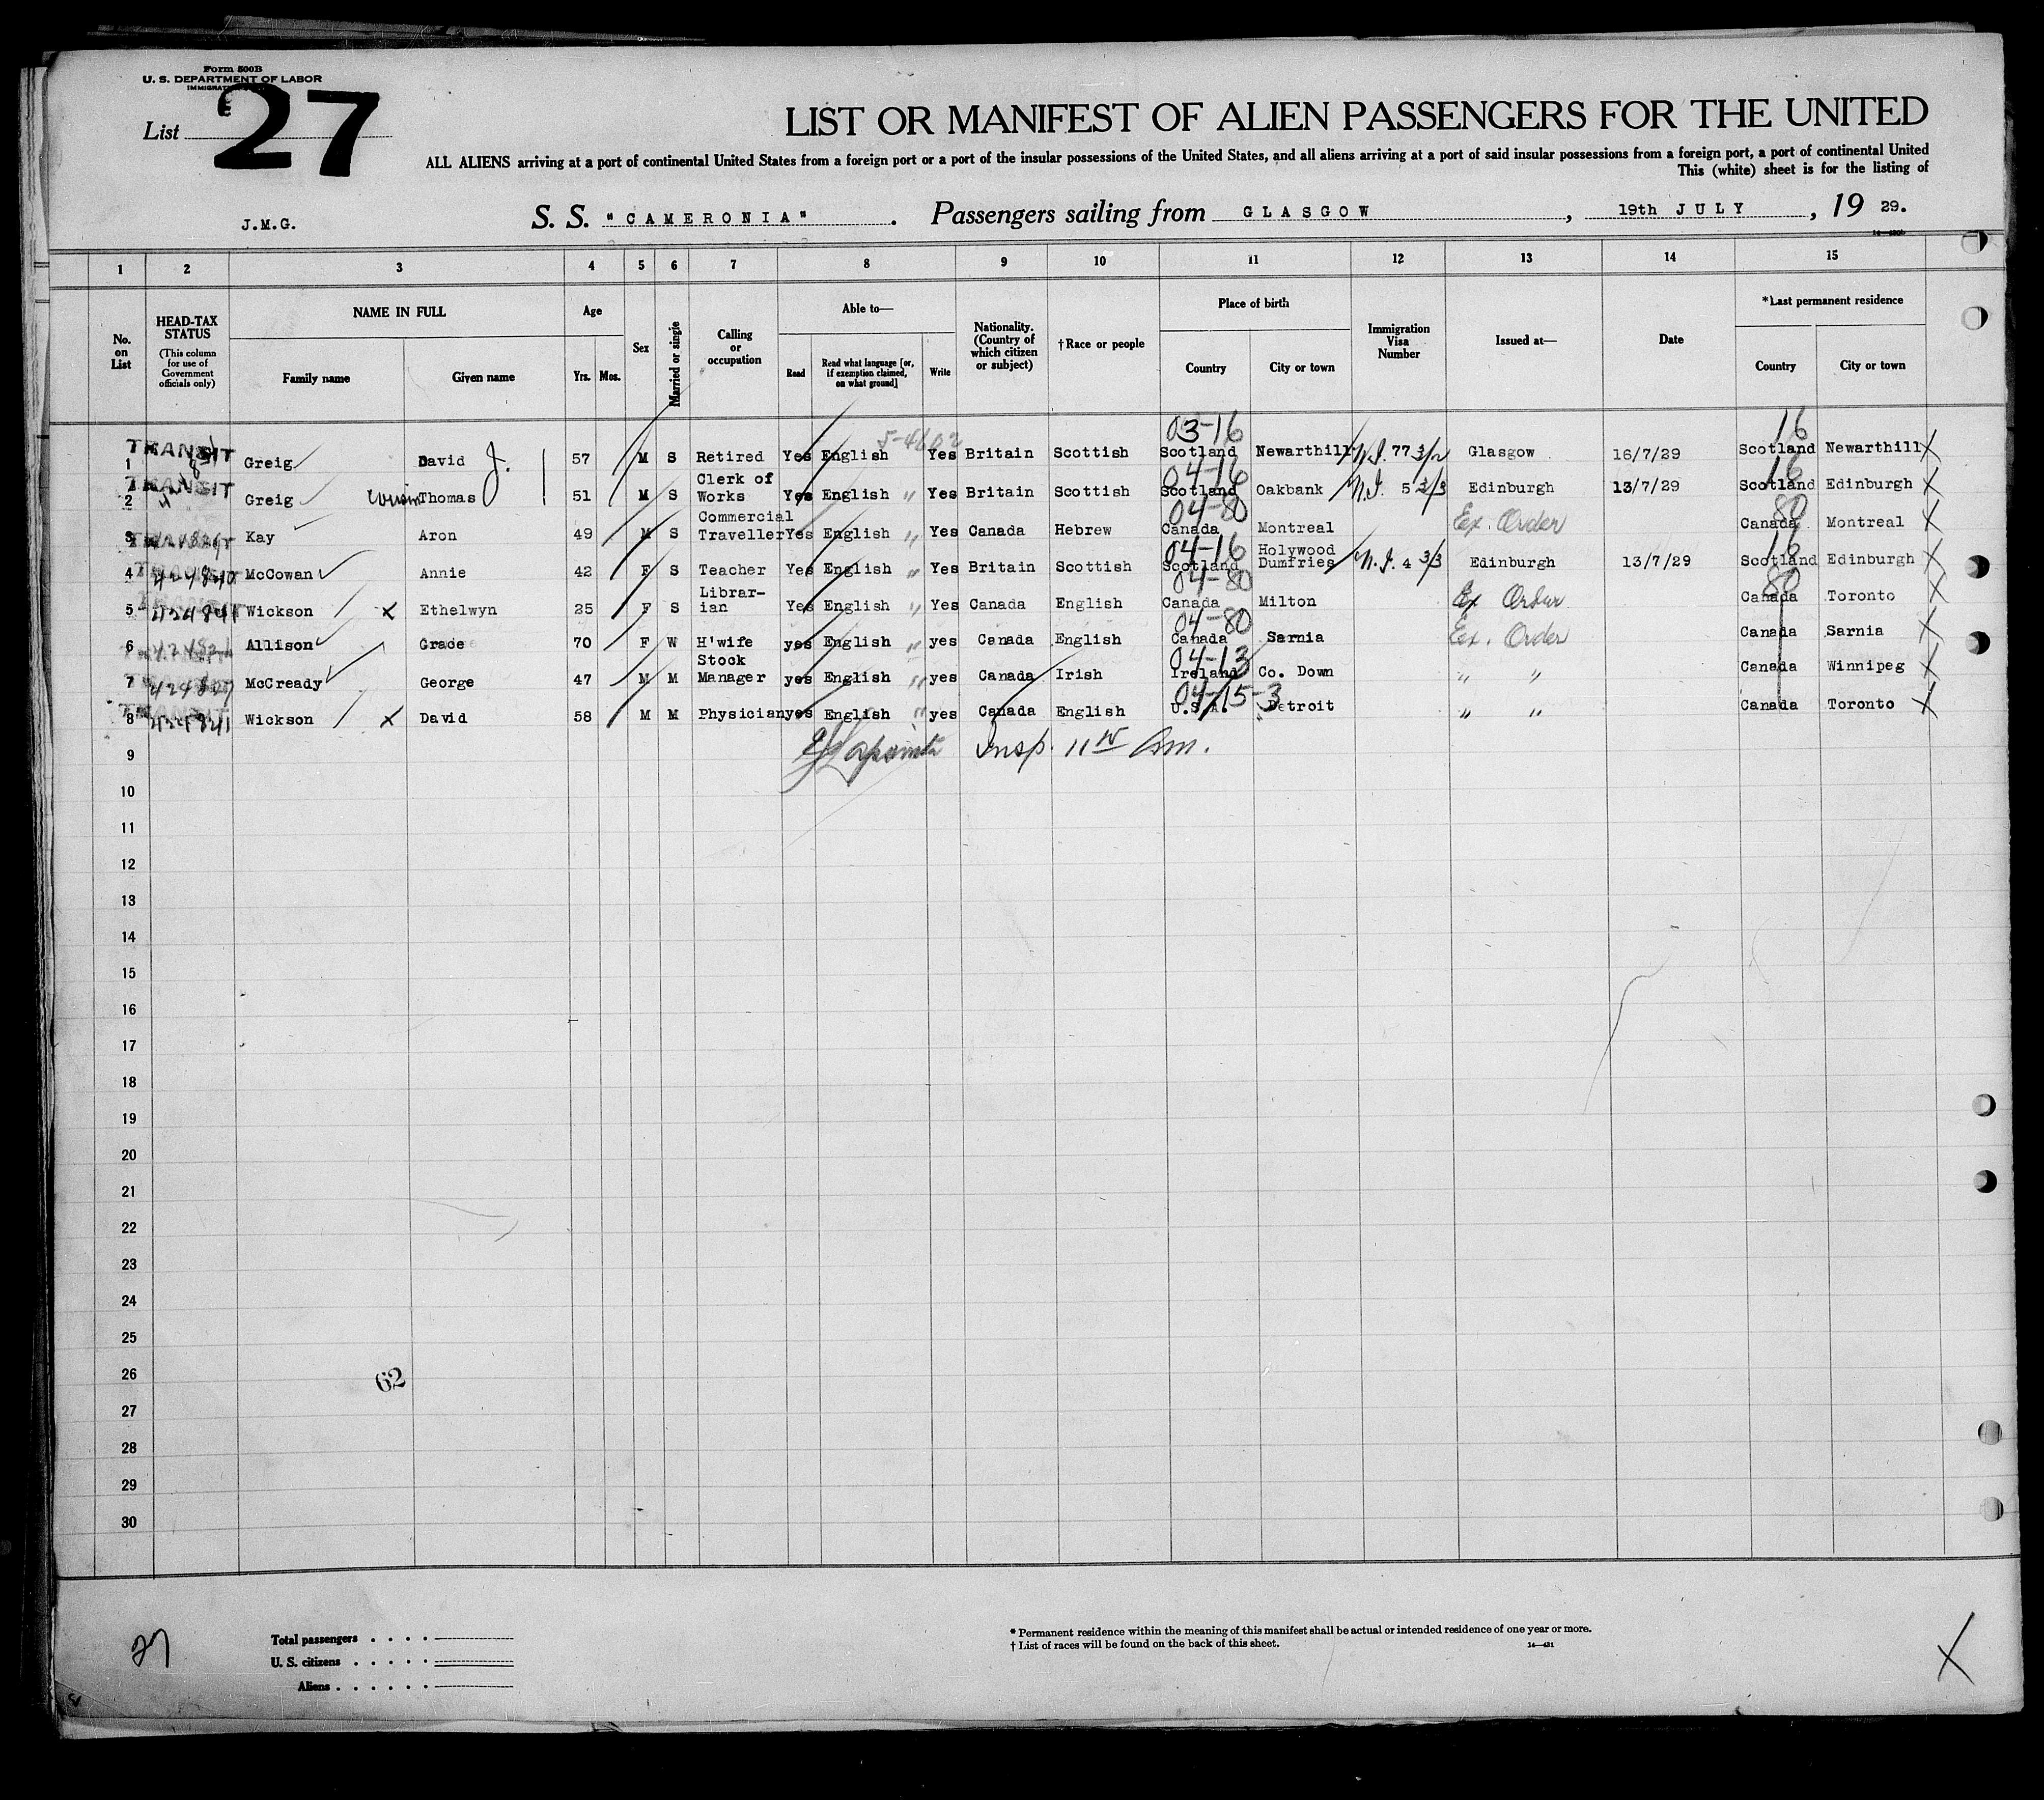 Form 500B
U. S. DEPARTMENT OF LABOR
List 27
LIST OR MANIFEST OF ALIEN PASSENGERS FOR THE UNITED
ALL ALIENS arriving at a port of continental United States from a foreign port or a port of the insular possessions of the United States, and all aliens arriving at a port of said insular possessions from a foreign port, a port of continental United
This (white) sheet is for the listing of
J.M.G. S. S. "CAMERONIA". Passengers sailing from GLASGOW, 19th JULY, 19 29.
1 2 3 4 5 6 7 8 9 10 11 12 13 14 15
No. on List
HEAD-TAX STATUS (This column for use of Government officials only)
NAME IN FULL Family name Given name
Age Yrs. Mos.
Sex
Married or single
Calling or occupation
Able to— Read Read what language [or, if exemption claimed, on what ground] Write
Nationality. (Country of which citizen or subject)
†Race or people
Place of birth Country City or town
Immigration Visa Number
Issued at—
Date
*Last permanent residence Country City or town
03-16 16
TRANSIT 1 Greig David J. 57 M S Retired Yes English Yes Britain Scottish Scotland Newarthill 77 Glasgow 16/7/29 Scotland Newarthill X
04-16 16
TRANSIT 2 Greig cousin Thomas 51 M S Clerk of Works Yes English " Yes Britain Scottish Scotland Oakbank 5 Edinburgh 13/7/29 Scotland Edinburgh X
04-80 80
3 Kay Aron 49 M S Commercial Traveller Yes English " Yes Canada Hebrew Canada Montreal Ex. Order Canada Montreal X
04-16 16
4 424840 McCowan Annie 42 F S Teacher Yes English " Yes Britain Scottish Scotland Holywood Dumfries 4 3/3 Edinburgh 13/7/29 Scotland Edinburgh X
04-80 80
5 424841 Wickson X Ethelwyn 25 F S Librar-ian Yes English " Yes Canada English Canada Milton Ex Order Canada Toronto X
04-80
6 Allison Grade 70 F W H'wife yes English " yes Canada English Canada Sarnia Ex. Order Canada Sarnia X
04-13
7 McCready George 47 M M Stock Manager yes English " yes Canada Irish Ireland Co. Down " " Canada Winnipeg X
04-15-3
8 424841 Wickson X David 58 M M Physician yes English " yes Canada English U.S.A. Detroit " " Canada Toronto X
9 Insp.
10
11
12
13
14
15
16
17
18
19
20
21
22
23
24
25
26 62
27
28
29
30
27
Total passengers . . . .
U. S. citizens . . . . .
Aliens . . . . . .
* Permanent residence within the meaning of this manifest shall be actual or intended residence of one year or more.
† List of races will be found on the back of this sheet. 14—431
X